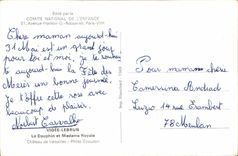 Édité par le
COMITÉ NATIONAL DE L'ENFANCE
51, Avenue Franklin D.-Roosevelt, Paris-VIIIe
Chère maman aujourd'hui
31 Mai est un grand jour
pour toi et moi. Je te souhaite
aujourd'hui la Fête des
Mères un bonne journée.
Je t'offre cette rose avec
beaucoup de plaisir.
Pour maman chère
14 rue
78 Meulan
VIGÉE-LEBRUN
Le Dauphin et Madame Royale
Château de Versailles - Photo Giraudon